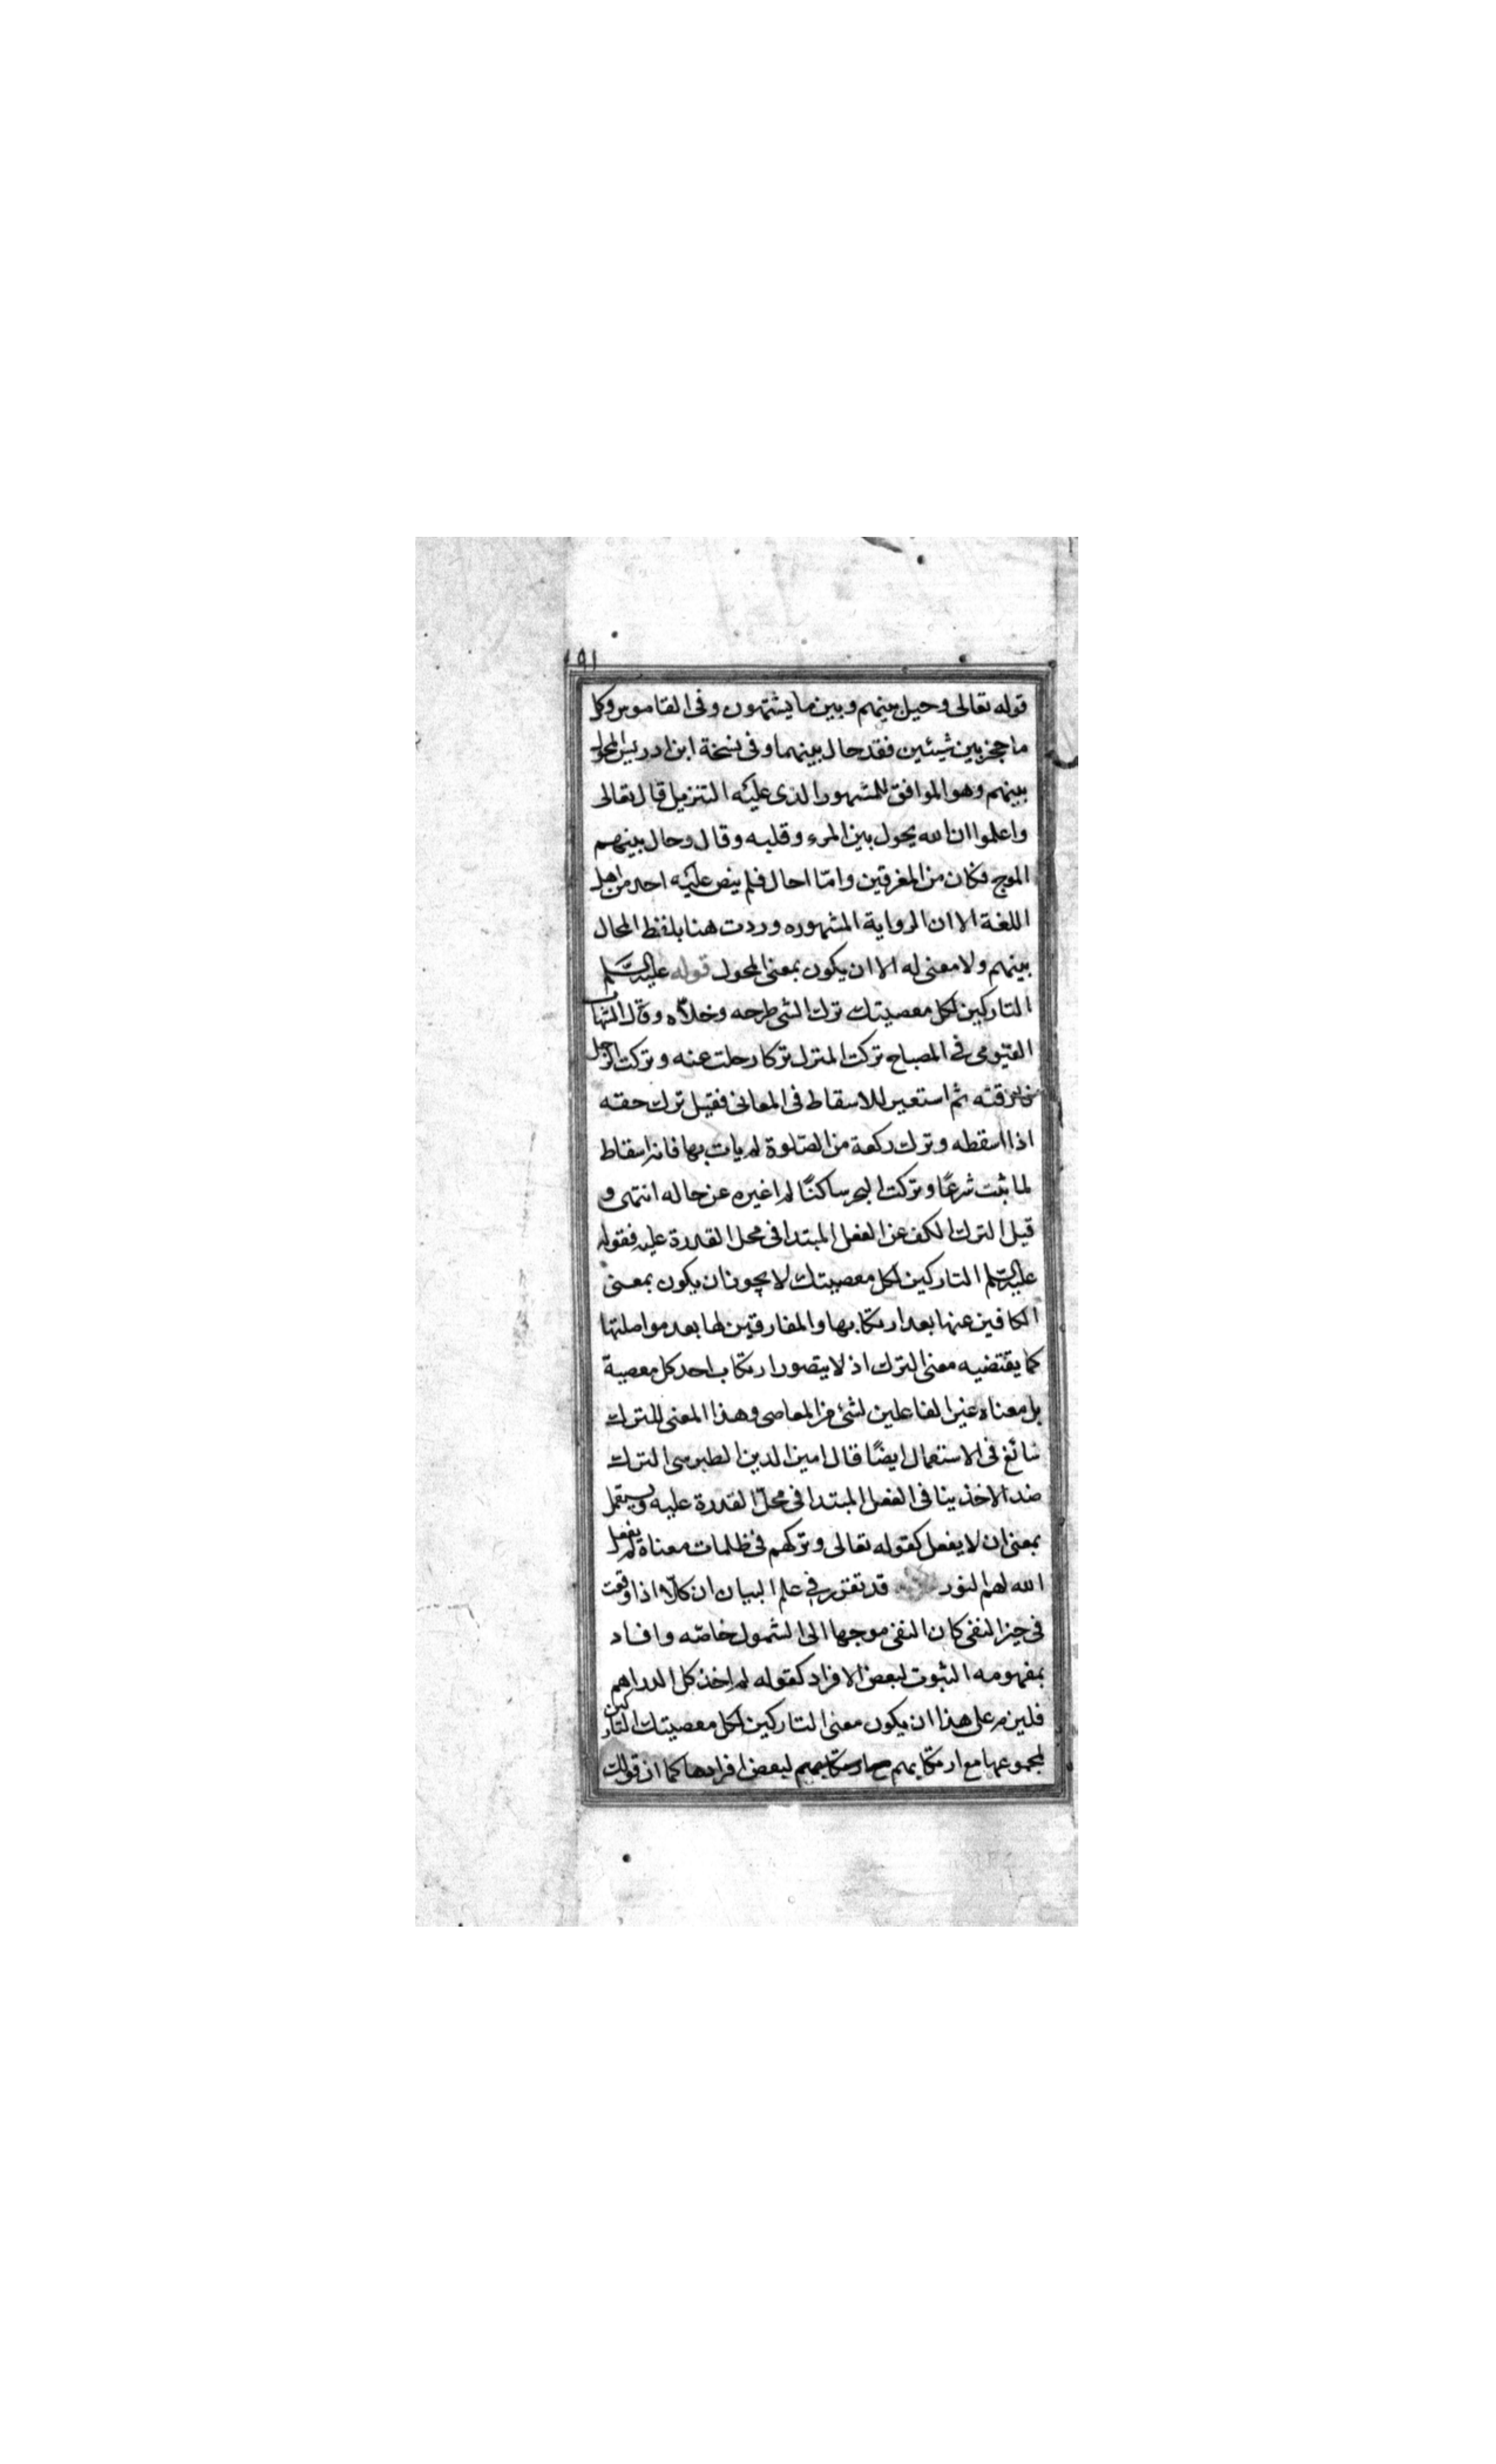 ١٩١
قوله تعالى وحيل بينهم وبين ما يشتهون وفى القاموس وكل
ما حجز بين شيئين فقد حال بينهما وفى نسخة ابن ادريس المحول
بينهم وهو الموافق للمشهور الذى عليه التنزيل قال تعالى
واعلموا ان الله يحول بين المرء وقلبه وقال وحال بينهم
الموج فكان من المغرقين وامّا احال فلم ينص عليه احد من اهل
اللغة الا ان الرواية المشهوره وردت هنا بلفظ المحال
بينهم ولا معنى له الا ان يكون بمعنى المحول قوله عليه السّلم
التاركين لكل معصيتك ترك الشى طرحه وخلاّه وقال الشهاب
الفيّومى فى المصباح تركت المنزل تركا رحلت عنه وتركت الرجل
فارقته ثم استعير للاسقاط فى المعانى فقيل ترك حقه
اذا اسقطه وترك ركعة من الصّلوة لم يات بها فانه اسقاط
لما ثبت شرعًا وتركت البحر ساكنًا لم اغيره عن حاله انتهى و
قيل الترك الكف عن الفعل المبتدا فى محل القدرة عليه فقوله
عليه السّلم التاركين لكل معصيتك لا يجوز ان يكون بمعنى
الكافين عنها بعد ارتكابها والمفارقين لها بعد مواصلتها
كما يقتضيه معنى الترك اذ لا يتصور ارتكاب احد كل معصية
بل معناه غير الفاعلين لشئ من المعاصى وهذا المعنى للترك
شائع فى الاستعمال ايضًا قال امين الدين الطبرسى الترك
ضد الاخذ ينافى الفعل المبتدا فى محلّ القدرة عليه ويستعمل
بمعنى ان لا يفعل كقوله تعالى وتركهم فى ظلمات معناه لم يفعل
الله لهم النور قد تقرر فى علم البيان ان كلاّ اذا وقعت
فى حيز النفى كان النفى موجها الى الشمول خاصّه وافاد
بمفهومه الثبوت لبعض الافراد كقوله لم اخذ كل الدراهم
فلزم على هذا ان يكون معنى التاركين لكل معصيتك التاركين
لمجموعها مع ارتكابهم لبعض افرادها كما ان قولك